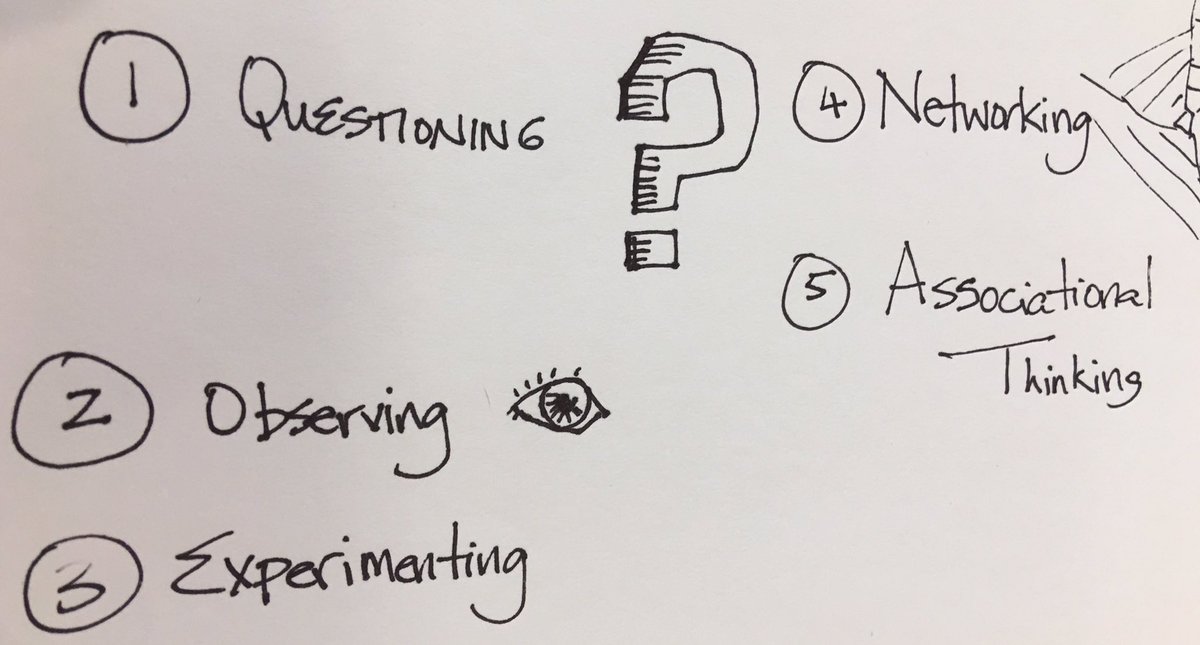 1 QUESTIONING ?
2 Observing
3 Experimenting
4 Networking
5 Associational
Thinking